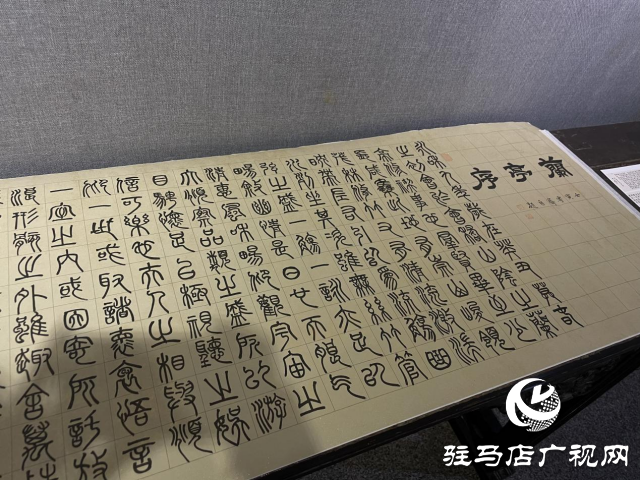 蘭亭序
永和九年歲在癸丑暮春
之初會于會稽山陰之蘭
亭脩禊事也羣賢畢至少
長咸集此地有崇山峻領
茂林脩竹又有清流激湍
映帶左右引以爲流觴曲
水列坐其次雖無絲竹管
弦之盛一觴一詠亦足以
暢敘幽情是日也天朗氣
清惠風和暢仰觀宇宙之
大俯察品類之盛所以遊
目騁懷足以極視聽之娛
信可樂也夫人之相與俯
仰一世或取諸懷抱悟言
一室之內或因寄所託放
浪形骸之外雖趣舍萬
驻马店广视网